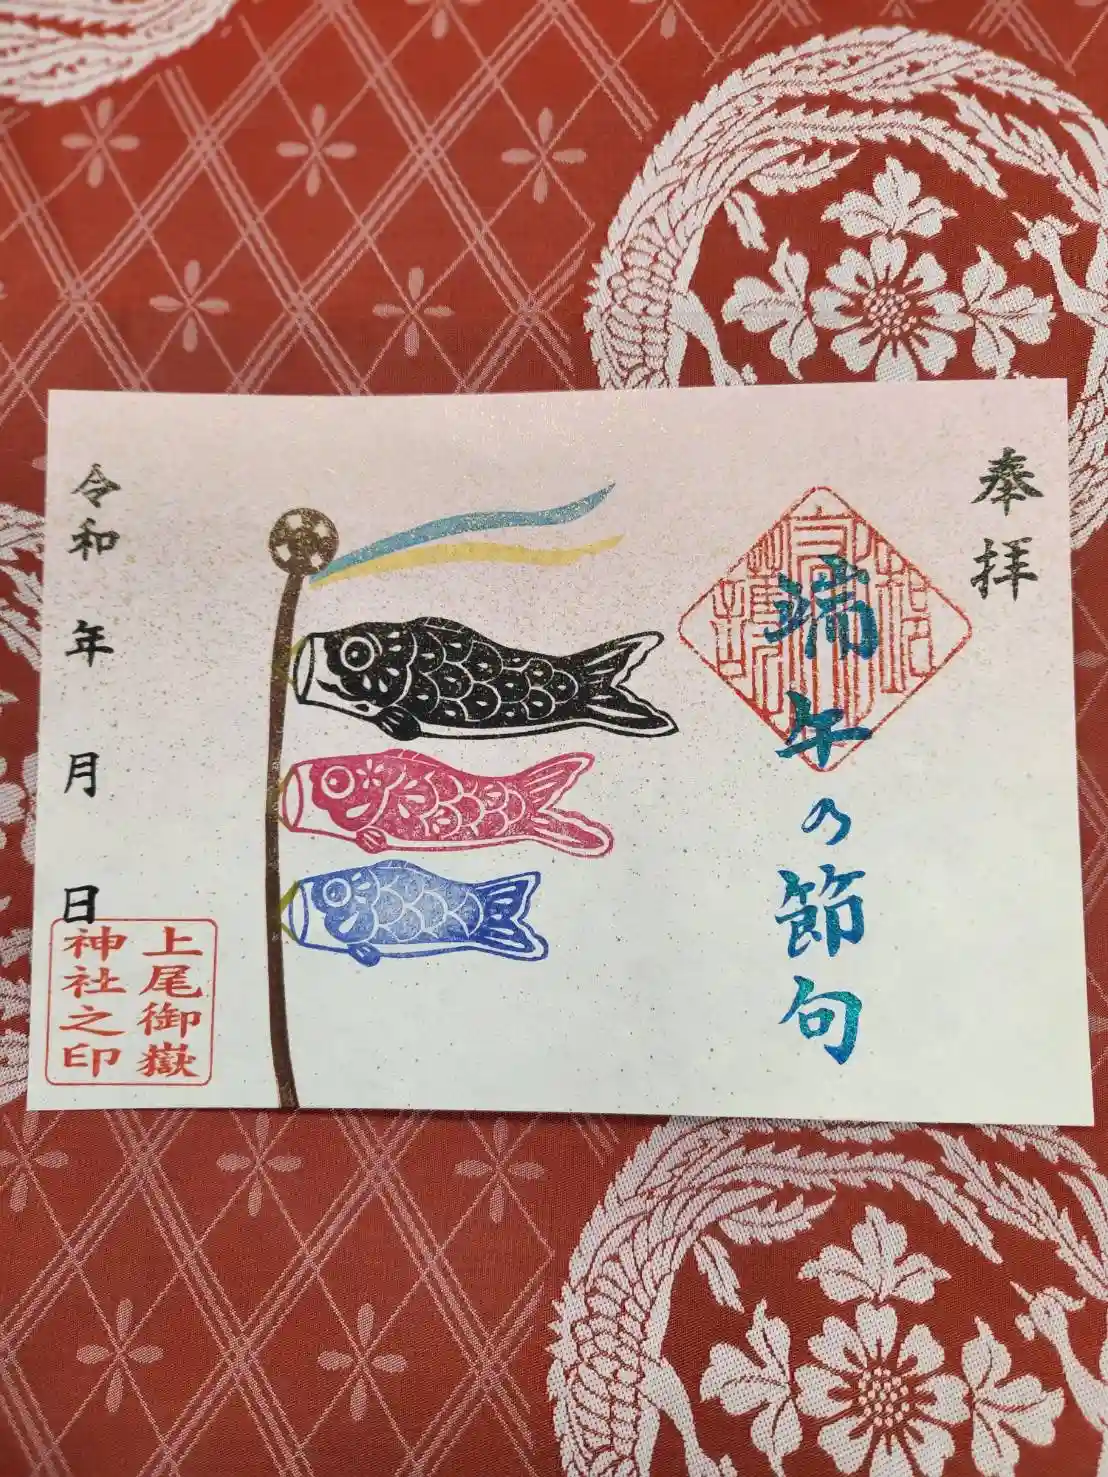 奉拝
端午の節句
令和 年 月 日
上尾御嶽
神社之印